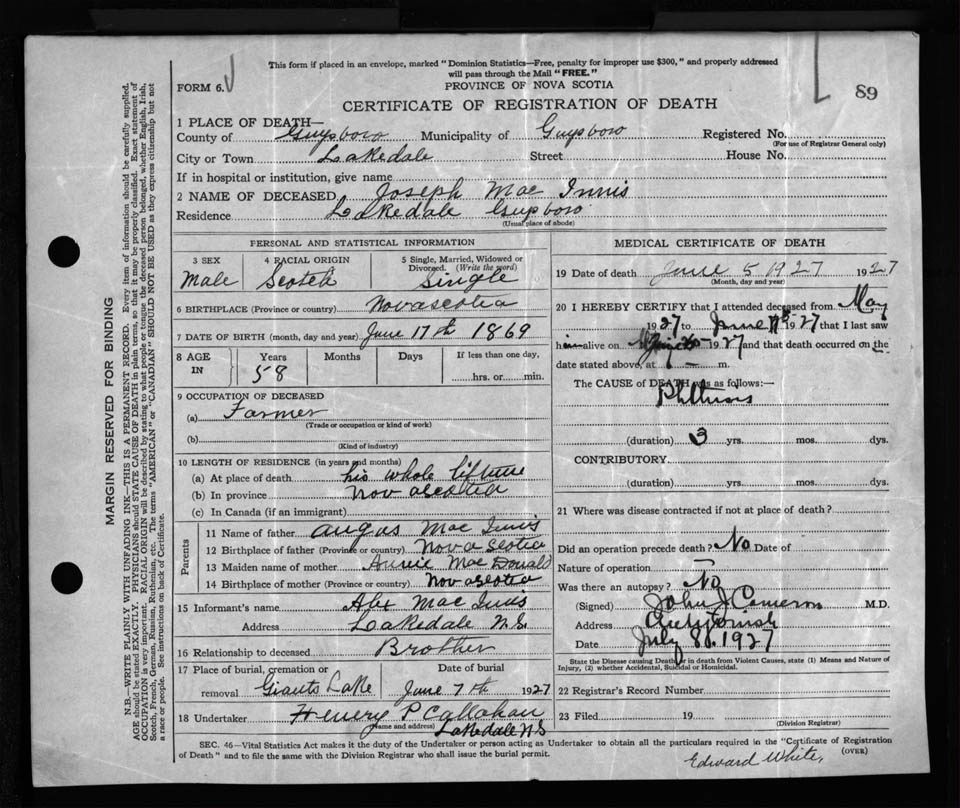 This form if placed in an envelope, marked "Dominion Statistics—Free, penalty for improper use $300," and properly addressed
will pass through the Mail "FREE."
FORM 6.
PROVINCE OF NOVA SCOTIA
89
CERTIFICATE OF REGISTRATION OF DEATH
1 PLACE OF DEATH—
County of Guysboro Municipality of Guysboro Registered No.
(For use of Registrar General only)
City or Town Lakedale Street House No.
If in hospital or institution, give name
2 NAME OF DECEASED Joseph Mac Innis
Residence Lakedale Guysboro
(Usual place of abode)
PERSONAL AND STATISTICAL INFORMATION
3 SEX Male
4 RACIAL ORIGIN Scotch
5 Single, Married, Widowed or Divorced. (Write the word) Single
6 BIRTHPLACE (Province or country) Novascotia
7 DATE OF BIRTH (month, day and year) June 17th 1869
8 AGE IN Years 58 Months Days If less than one day, hrs. or min.
9 OCCUPATION OF DECEASED
(a) Farmer
(Trade or occupation or kind of work)
(b)
(Kind of industry)
10 LENGTH OF RESIDENCE (in years and months)
(a) At place of death his whole lifetime
(b) In province Nov ascotia
(c) In Canada (if an immigrant)
Parents
11 Name of father Angus Mac Innis
12 Birthplace of father (Province or country) Nova scotia
13 Maiden name of mother Annie Mac Donald
14 Birthplace of mother (Province or country) Nov ascotia
15 Informant's name Alex Mac Innis
Address Lakedale N.S.
16 Relationship to deceased Brother
17 Place of burial, cremation or removal Giants Lake Date of burial June 7th 1927
18 Undertaker Henery P Callahan
(name and address) Lakedale N S
MEDICAL CERTIFICATE OF DEATH
19 Date of death June 5 1927 1927
(Month, day and year)
20 I HEREBY CERTIFY that I attended deceased from May
1927 to June 1927 that I last saw
him alive on 1927 and that death occurred on the
date stated above, at m.
The CAUSE of DEATH was as follows:—
Phthisis
(duration) 3 yrs. mos. dys.
CONTRIBUTORY
(duration) yrs. mos. dys.
21 Where was disease contracted if not at place of death?
Did an operation precede death? No Date of
Nature of operation —
Was there an autopsy? No
(Signed) John J Cameron M.D.
Address Antigonish
Date July 8 1927
State the Disease causing Death, or in death from Violent Causes, state (1) Means and Nature of
Injury, (2) whether Accidental, Suicidal or Homicidal.
22 Registrar's Record Number
23 Filed 19
(Division Registrar)
SEC. 46—Vital Statistics Act makes it the duty of the Undertaker or person acting as Undertaker to obtain all the particulars required in the "Certificate of Registration
of Death" and to file the same with the Division Registrar who shall issue the burial permit.
(OVER)
Edward White,
MARGIN RESERVED FOR BINDING
N.B.—WRITE PLAINLY WITH UNFADING INK—THIS IS A PERMANENT RECORD. Every item of information should be carefully supplied.
AGE should be stated EXACTLY. PHYSICIANS should STATE CAUSE OF DEATH in plain terms, so that it may be properly classified. Exact statement of
OCCUPATION is very important. RACIAL ORIGIN will be described by stating to what people or tongue the deceased person belonged, whether English, Irish,
Scotch, French, German, Russian, Ruthenian, etc. The terms "AMERICAN" or "CANADIAN" SHOULD NOT BE USED as they express citizenship but not
a race or people. See instructions on back of Certificate.